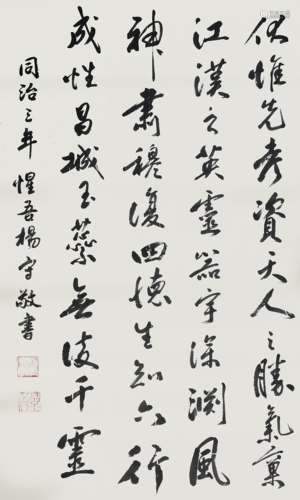 伏惟先考資天人之勝氣稟
江漢之英靈器宇深淵風
神肅穆復四德生知六行
成性昌城玉蕊無波千靈
同治三年惺吾楊守敬書